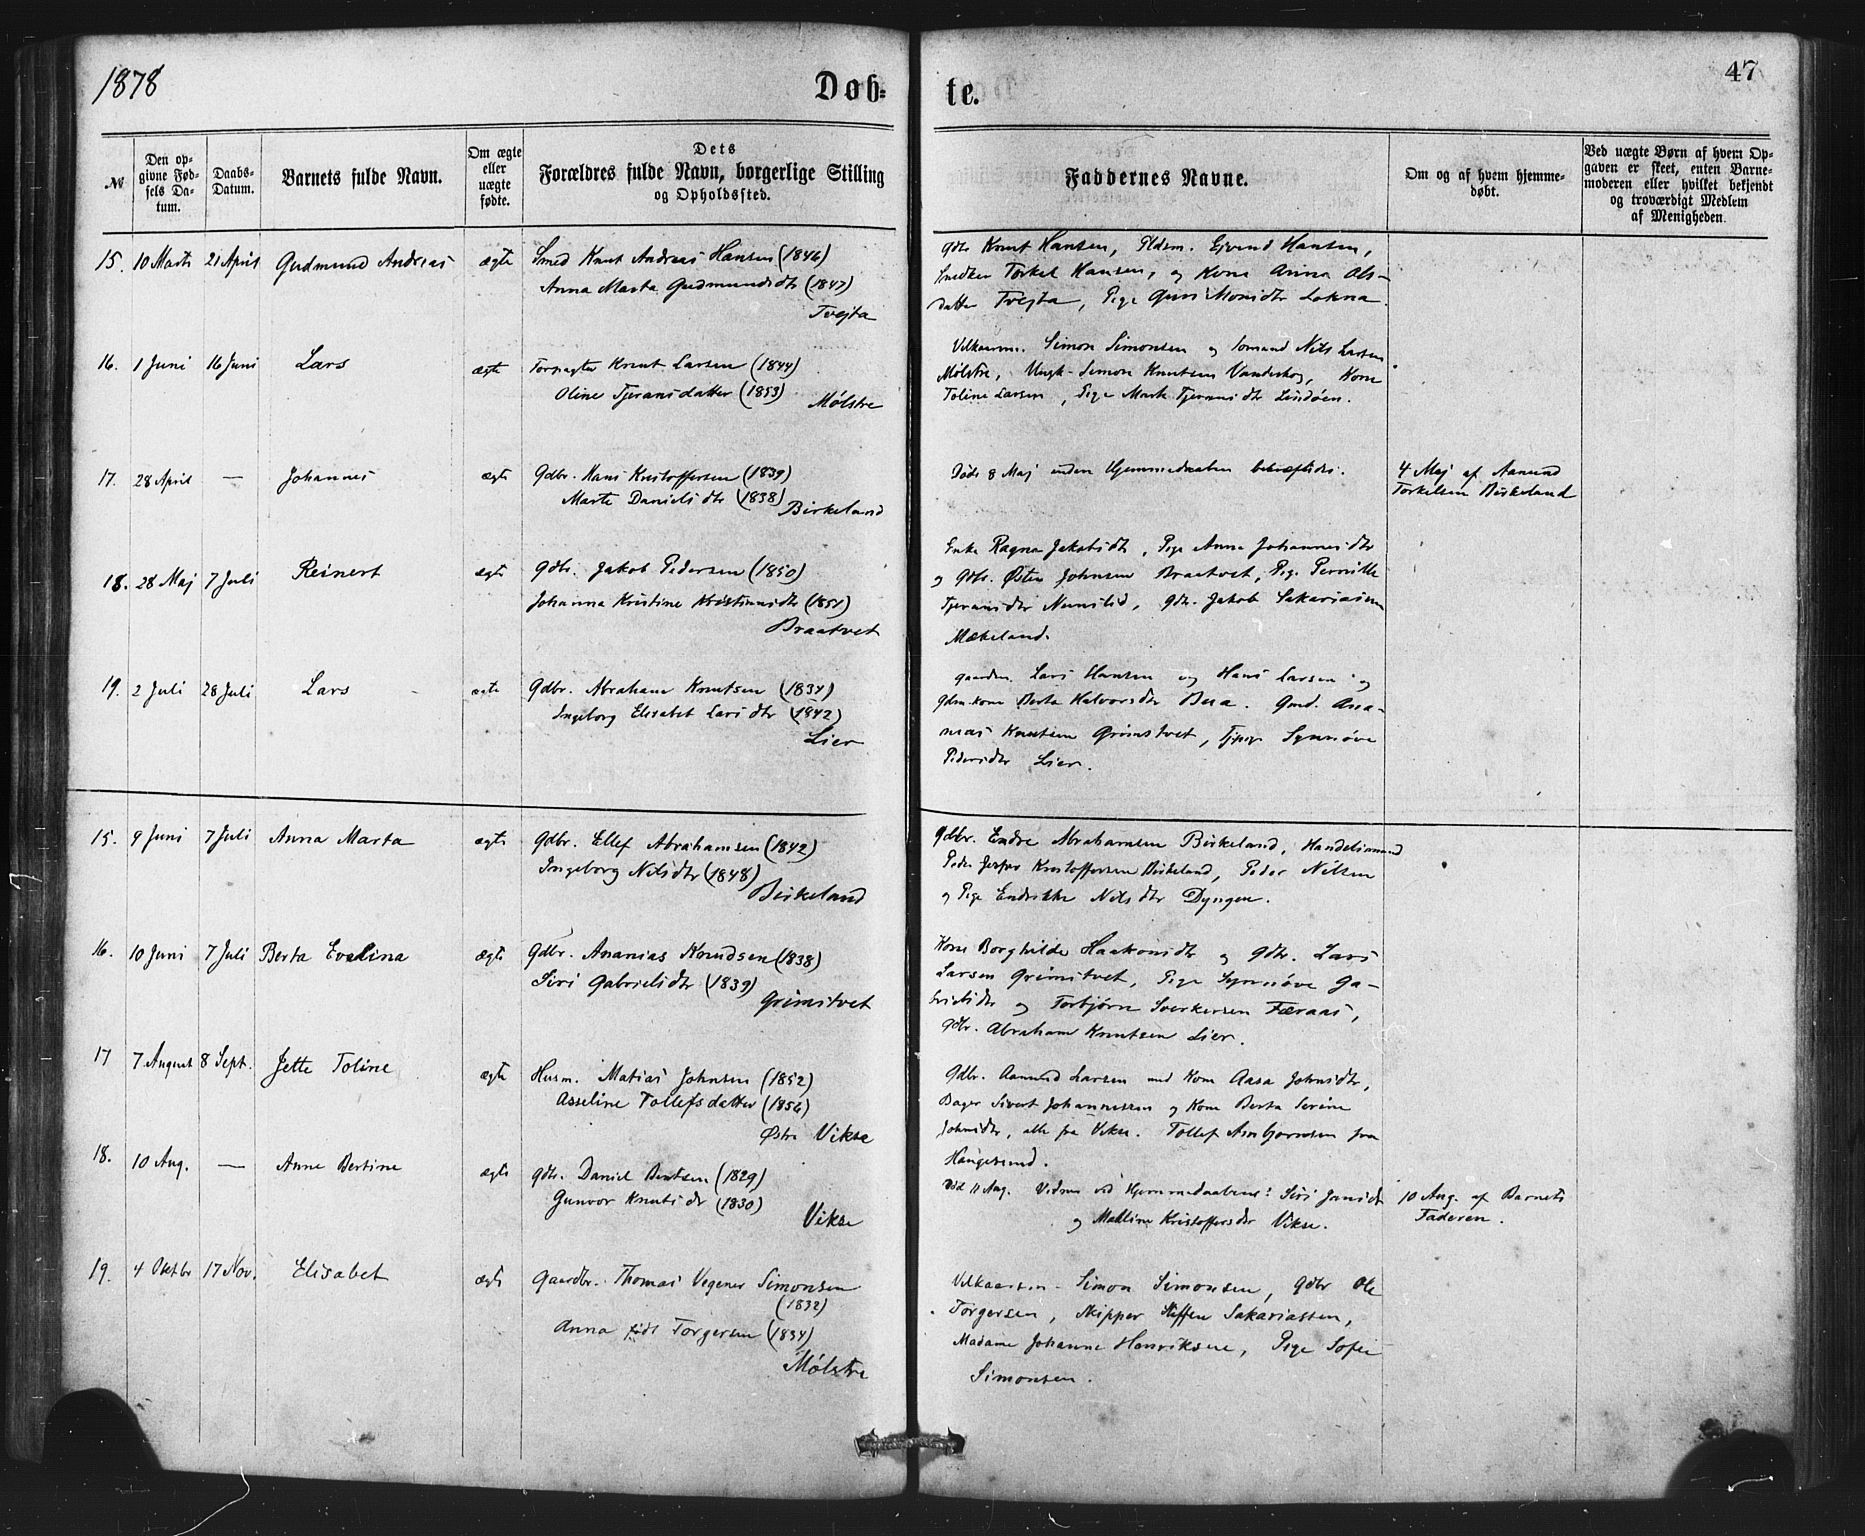 1878
Døb-
te.
47
№
Den op-
givne Fød-
sels Da-
tum.
Daabs-
Datum.
Barnets fulde Navn.
Om ægte
eller
uægte
fødte.
Dets
Forældres fulde Navn, borgerlige Stilling
og Opholdssted.
Faddernes Navne.
Om og af hvem hjemme-
døbt.
Ved uægte Børn af hvem Op-
gaven er skeet, enten Barne-
moderen eller hvilket bekjendt
og troværdigt Medlem
af Menigheden.
15. 10 Marts 21 April Gudmund Andreas ægte Smed Knut Andreas Hansen (1846)
Anna Marta Gudmundsdtr (1847)
Tvejta
Gdbr Knut Hansen, Pldsm. Ejvind Hansen,
Snedker Torkel Hansen, og Kone Anna Ols-
datter Tvejta, Pige Guri Monsdtr Lokna.
16. 1 Juni 16 Juni Lars ægte Forpagter Knut Larsen (1844)
Oline Tjeransdatter (1853)
Mølstre
Simon Simonsen og Nils Larsen
Mølstre, Ungk. Simon Knutsen Vanderskog, Kone
Toline Larsen, Pige Marta Tjeransdtr Lindøen.
17. 28 April — Johannes ægte Gdbr. Hans Kristoffersen (1839)
Marte Danielsdtr (1838)
Birkeland
Døde 8 Maj uden Hjemmedaaben bekræftedes.
4 Maj af Aamund
Torkelsen Birkeland
18. 28 Maj 7 Juli Reinert ægte Gdbr. Jakob Pedersen (1850)
Johanna Kristine Kristiansdtr (1851)
Braatvet
Enke Ragna Jakobsdtr, Pige Anna Johannesdtr
og Gdbr. Østen Johnsen Braatvet, Pige Pernille
Tjeransdtr, Gdbr. Jakob Sakariasen
Mækeland.
19. 2 Juli 28 Juli Lars ægte Gdbr. Abraham Knutsen (1834)
Ingeborg Elisabet Larsdtr (1842)
Lier
Lars Hansen og Hans Larsen og
Berta Halvorsdtr Bua. Gmd. Ana-
nias Knutsen Grimstvet, Synnøve
Pedersdtr Lier.
15. 9 Juni 7 Juli Anna Marta ægte Gdbr. Ellef Abrahamsen (1842)
Ingeborg Nilsdtr (1848)
Birkeland
Gdbr. Endre Abrahamsen Birkeland, Handelsmand
Peder Jesper Kristoffersen Birkeland, Peder Nilsen
og Pige Endrikke Nilsdtr Dyngen.
16. 10 Juni 7 Juli Berta Evelina ægte Gdbr. Ananias Knudsen (1838)
Siri Gabrielsdtr (1839)
Grimstvet
Kone Borghilde Haakonsdtr og Gdbr. Lars
Larsen Grimstvet, Pige Synnøve Ga-
brielsdtr og Torbjørn Sverkersen Færaas,
Gdbr. Abraham Knutsen Lier.
17 7 August 8 Sept. Jette Toline ægte Husm. Matias Johnsen (1852)
Asseline Tollefsdatter (1856)
Østre Vikse
Gdbr. Aamund Larsen med Kone Aasa Johnsdtr,
Bager Sivert Johannessen og Kone Berta Serine
Johnsdtr, alle fra Vikse. Tollef Asbjørnsen fra
Haugesund.
18. 10 Aug. — Anne Bertine ægte Gdbr. Daniel Bentsen (1829)
Gunvor Knutsdtr (1830)
Vikse
Død 11 Aug. Vidner ved Hjemmedaaben: Siri Jansdtr
og Malline Kristoffersdtr Vikse.
10 Aug. af Barnets
Faderen.
19. 4 Oktbr 17 Nov. Elisabet ægte Gaardbr. Thomas Vegener Simonsen
(1832)
Anna født Torgersen (1834)
Mølstre
Simon Simonsen, Gdbr Ole
Torgersen, Skipper Steffen Sakariassen,
Madame Johanne Henriksen, Pige Sofie
Simonsen.